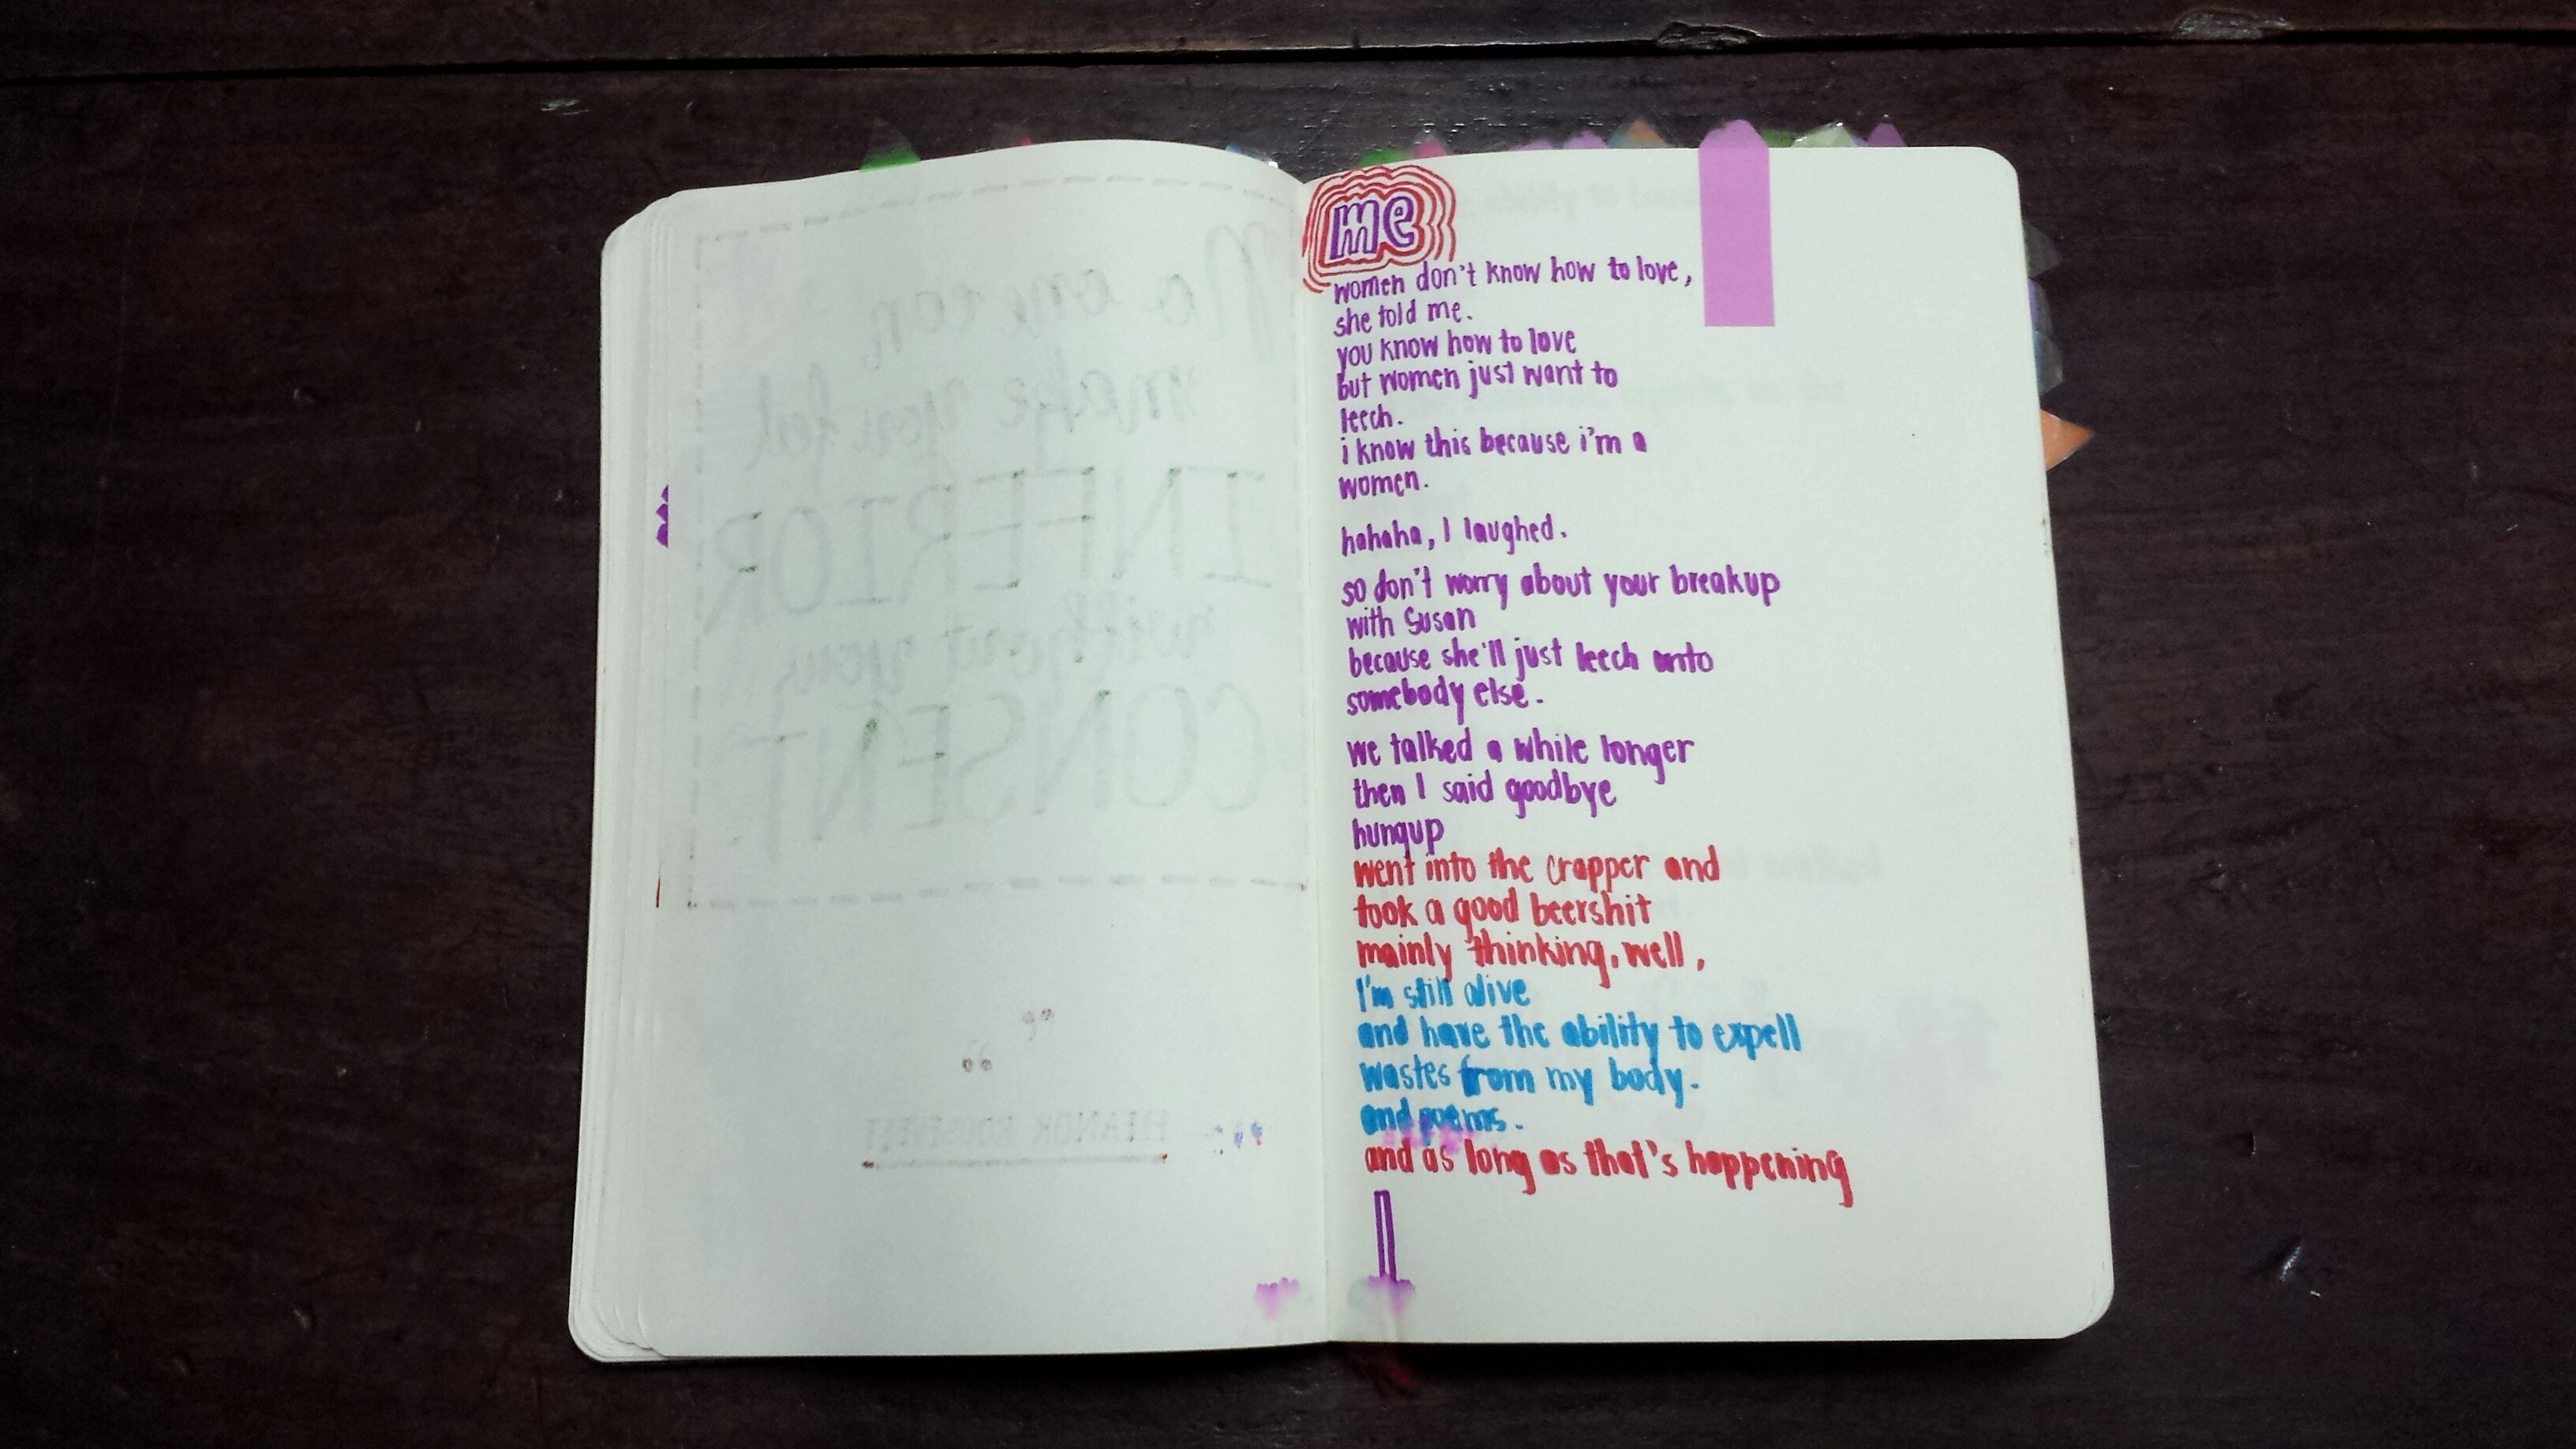 No one can
make you feel
INFERIOR
without your
CONSENT
ELEANOR ROOSEVELT
me
women don't know how to love,
she told me.
you know how to love
but women just want to
leech.
i know this because i'm a
women.
hahaha, I laughed.
so don't worry about your breakup
with Susan
because she'll just leech onto
somebody else.
we talked a while longer
then I said goodbye
hungup
went into the crapper and
took a good beershit
mainly thinking, well,
I'm still alive
and have the ability to expell
wastes from my body.
and poems.
and as long as that's happening